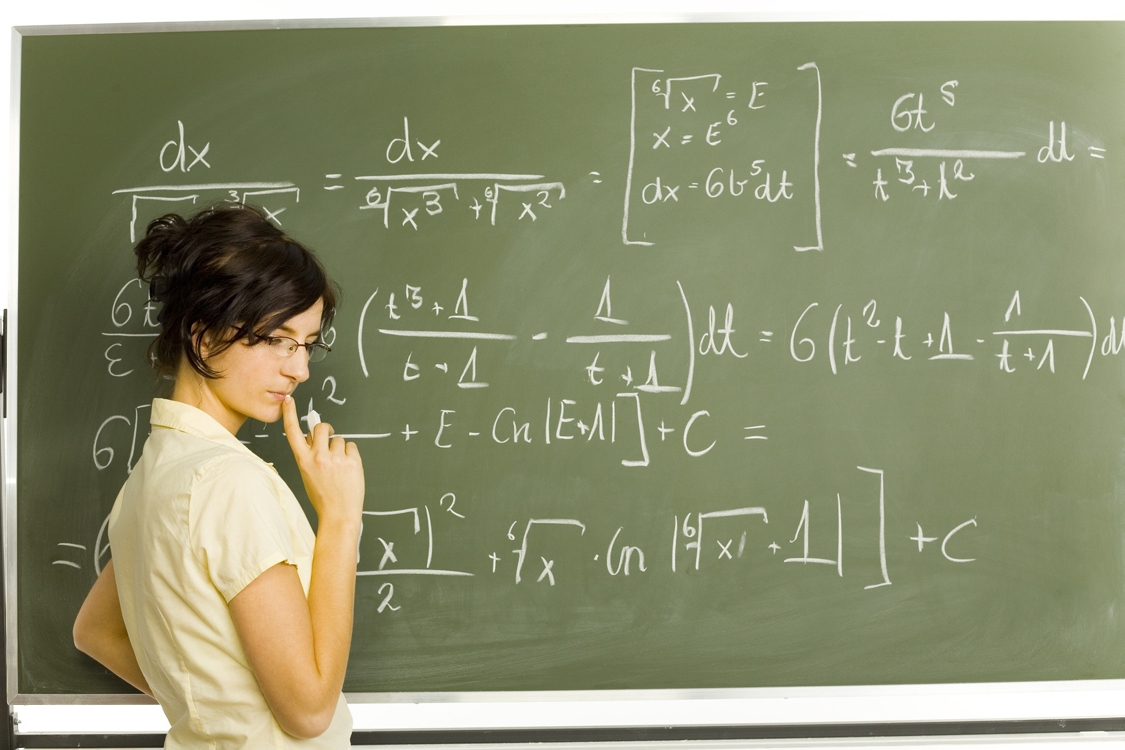 dx/(√ ∛x) = dx/(⁶√x³ + ⁶√x²) = [⁶√x = E
x = E⁶
dx = 6t⁵dt] = 6t⁵/(t³ + t²) dt =
6t/ε 6 ((t³ + 1)/(t + 1) - 1/(t + 1)) dt = 6(t² - t + 1 - 1/(t + 1)) d
6[ - t²/ + E - Cn |E + 1|] + C =
= ( x)²/2 + ⁶√x · Cn |⁶√x + 1|] + C